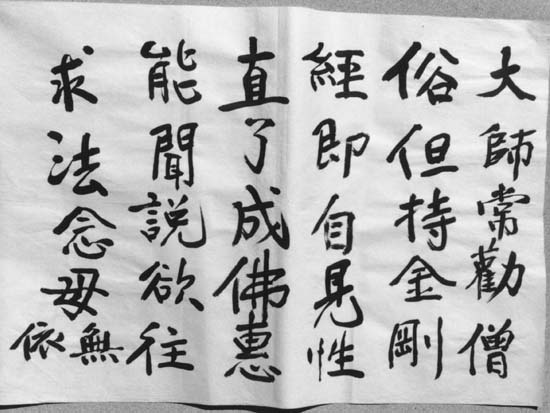 大師常勸僧
俗但持金剛
經即自見性
直了成佛惠
能聞說欲往
求法念母無
依